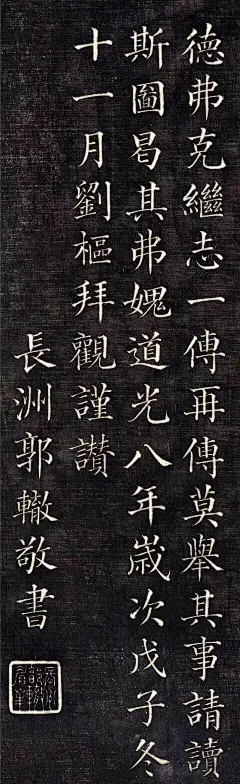 德弗克繼志一傳再傳莫舉其事請讀
斯圖曷其弗媿道光八年歲次戊子冬
十一月劉樞拜觀謹讚
長洲郭轍敬書